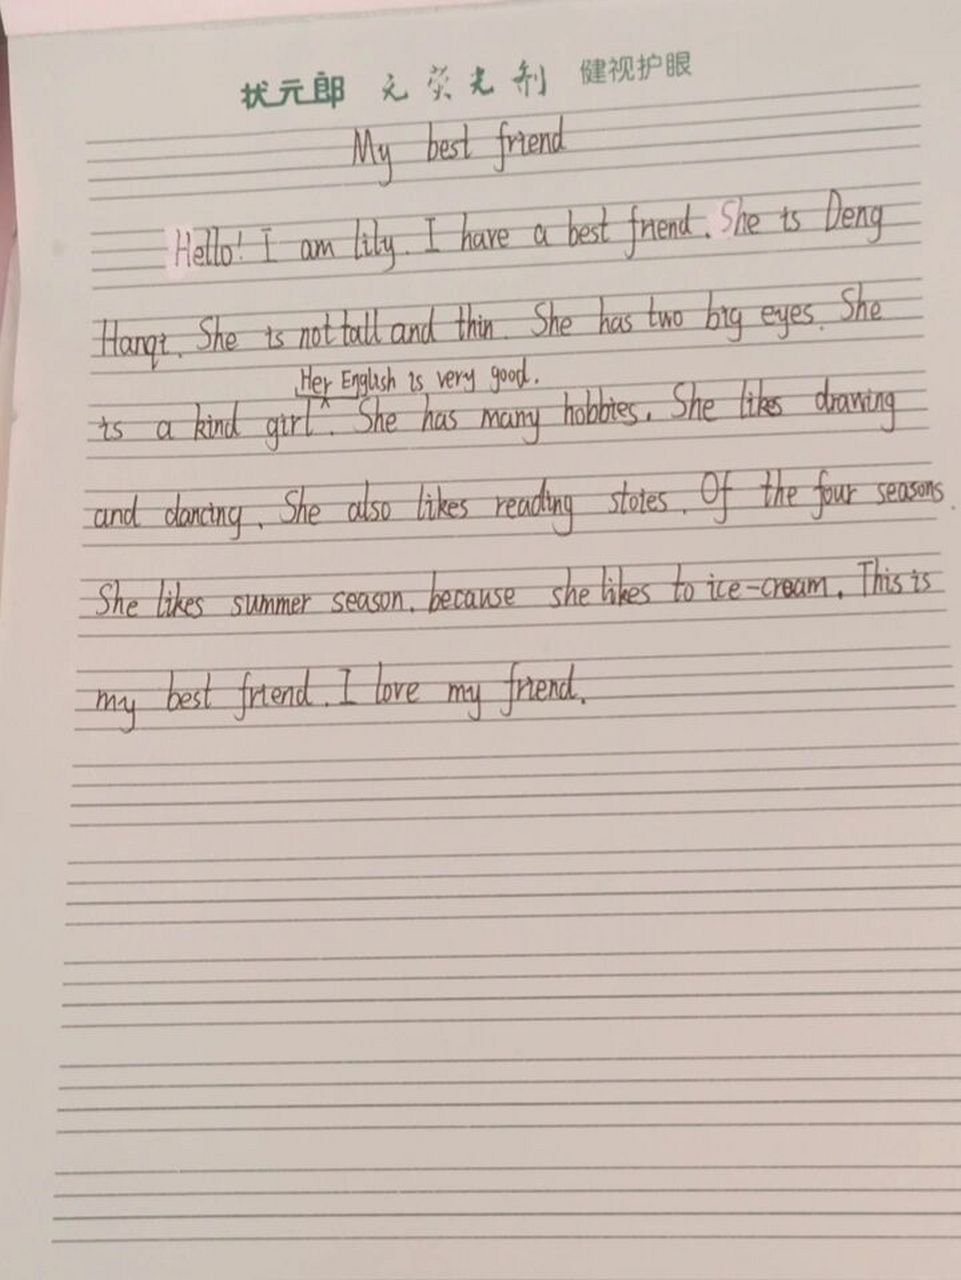 状元郎 无荧光剂 健视护眼
My best friend
Hello! I am lily. I have a best friend. She is Deng
Hanqi. She is not tall and thin. She has two big eyes. She
Her English is very good.
is a kind girl^. She has many hobbies. She likes drawing
and dancing. She also likes reading stoies. Of the four seasons.
She likes summer season. because she likes to ice-cream. This is
my best friend. I love my friend.